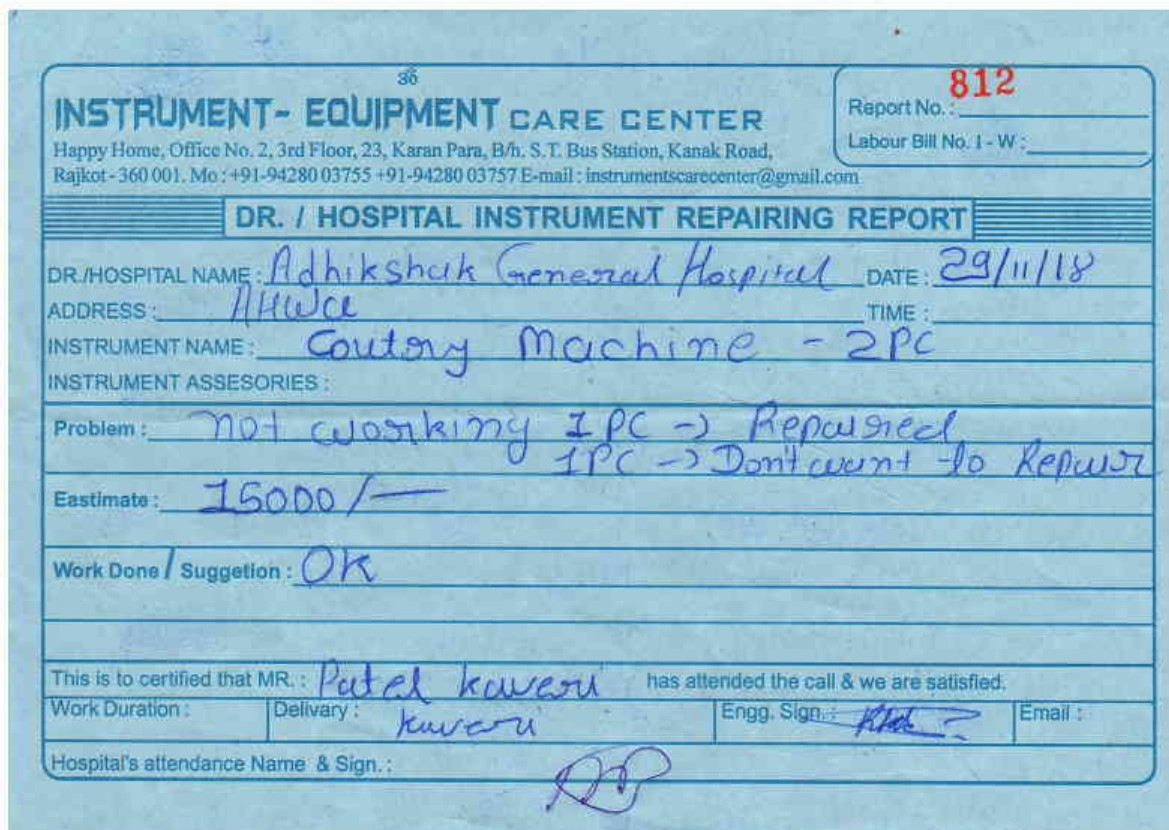 ૐ
INSTRUMENT- EQUIPMENT CARE CENTER
Happy Home, Office No. 2, 3rd Floor, 23, Karan Para, B/h. S.T. Bus Station, Kanak Road,
Rajkot - 360 001. Mo : +91-94280 03755 +91-94280 03757 E-mail : instrumentscarecenter@gmail.com
Report No. : 812
Labour Bill No. I - W :
DR. / HOSPITAL INSTRUMENT REPAIRING REPORT
DR./HOSPITAL NAME : Adhikshak General Hospital DATE : 29/11/18
ADDRESS : AHWA TIME :
INSTRUMENT NAME : Coutory Machine - 2PC
INSTRUMENT ASSESORIES :
Problem : not working 1PC -> Repaired
1PC -> Don't want to Repair
Eastimate : 15000/-
Work Done / Suggetion : OK
This is to certified that MR. : Patel Kaveri has attended the call & we are satisfied.
Work Duration : Delivary : Kavari Engg. Sign. : Email :
Hospital's attendance Name & Sign. :